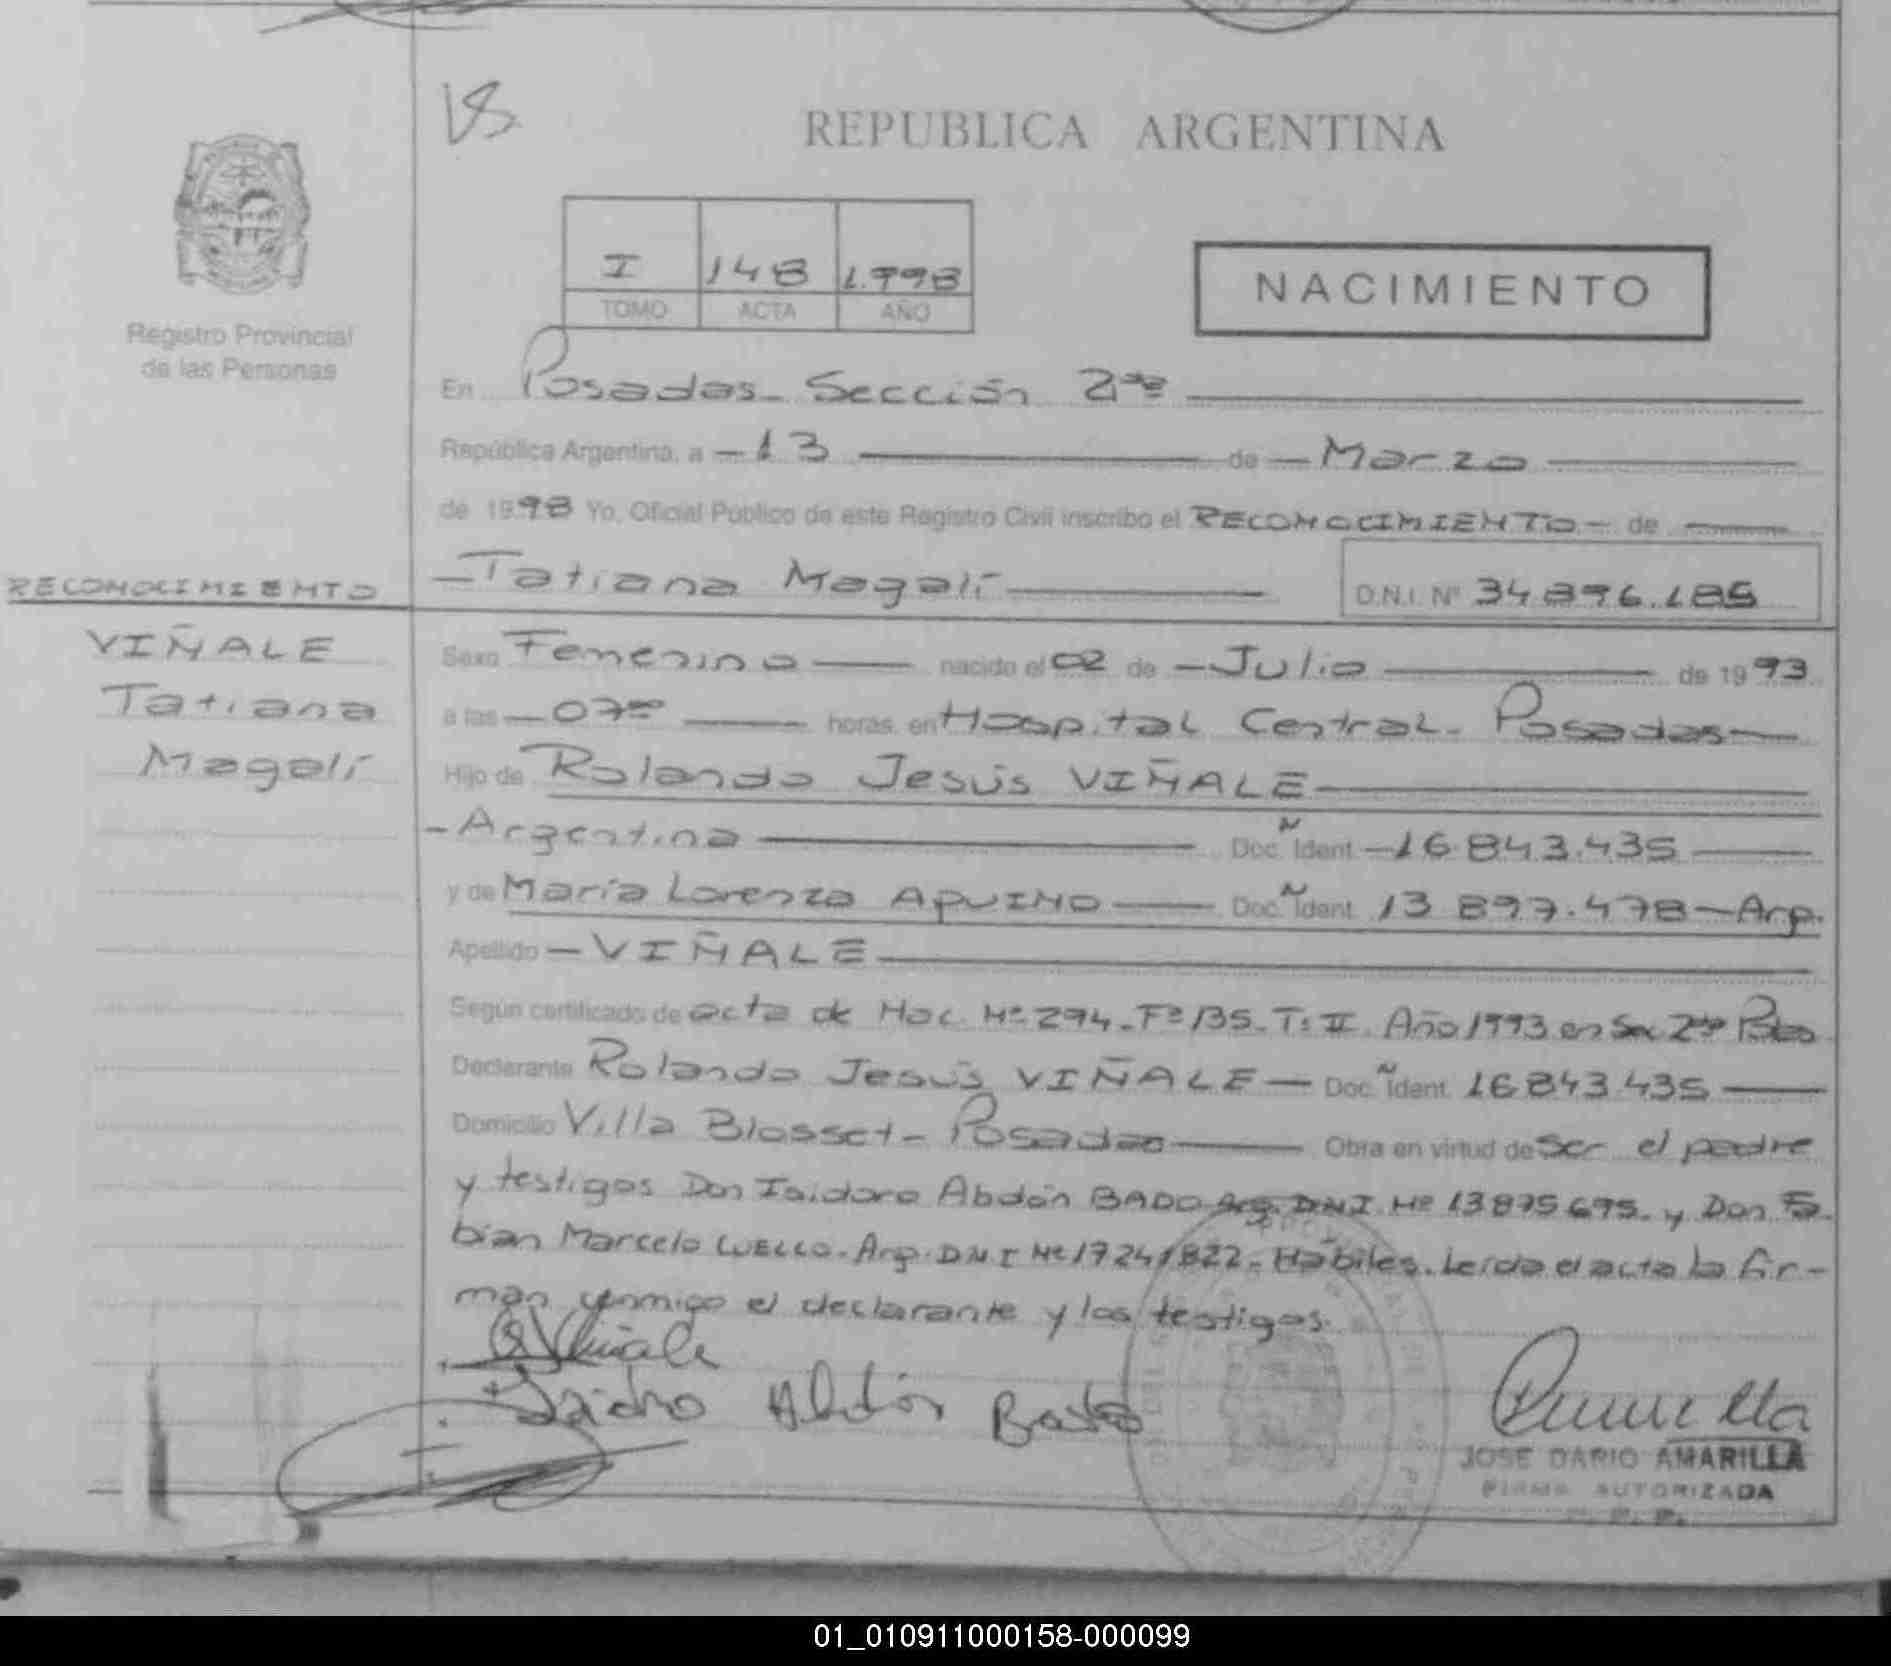 VS
REPUBLICA ARGENTINA
I 148 1.998
TOMO ACTA AÑO
NACIMIENTO
Registro Provincial
de las Personas
En Posadas - Sección 2da
República Argentina, a - 13 de - Marzo
de 1998 Yo, Oficial Público de este Registro Civil inscribo el RECONOCIMIENTO - de
- Tatiana Magalí D.N.I. Nº 34.896.185
RECONOCIMIENTO
VIÑALE
Tatiana
Magalí
Sexo Femenino nacido el 02 de - Julio de 1993
a las - 07 00 horas, en Hospital Central - Posadas
Hijo de Rolando Jesús VIÑALE
- Argentina Doc. Ident. - 16.843.435
y de María Lorenza AQUINO Doc. Ident. 13.897.478 - Arg.
Apellido - VIÑALE
Según certificado de acta de Nac. Nº 294 - Fº 135 - T: II. Año 1993 en Sec 2da
Declarante Rolando Jesús VIÑALE - Doc. Ident. 16.843.435
Domicilio Villa Blosset - Posadas Obra en virtud de ser el padre
y testigos Don Isidoro Abdón BADO Arg. D.N.I. Nº 13.875.695. y Don Fa
bian Marcelo CUELLO - Arg. D.N.I Nº 17.241.822 - Hábiles. Leída el acta la fir-
man conmigo el declarante y los testigos.
Viñale
Isidro Abdón Bado
JOSE DARIO AMARILLA
FIRMA AUTORIZADA
01_010911000158-000099